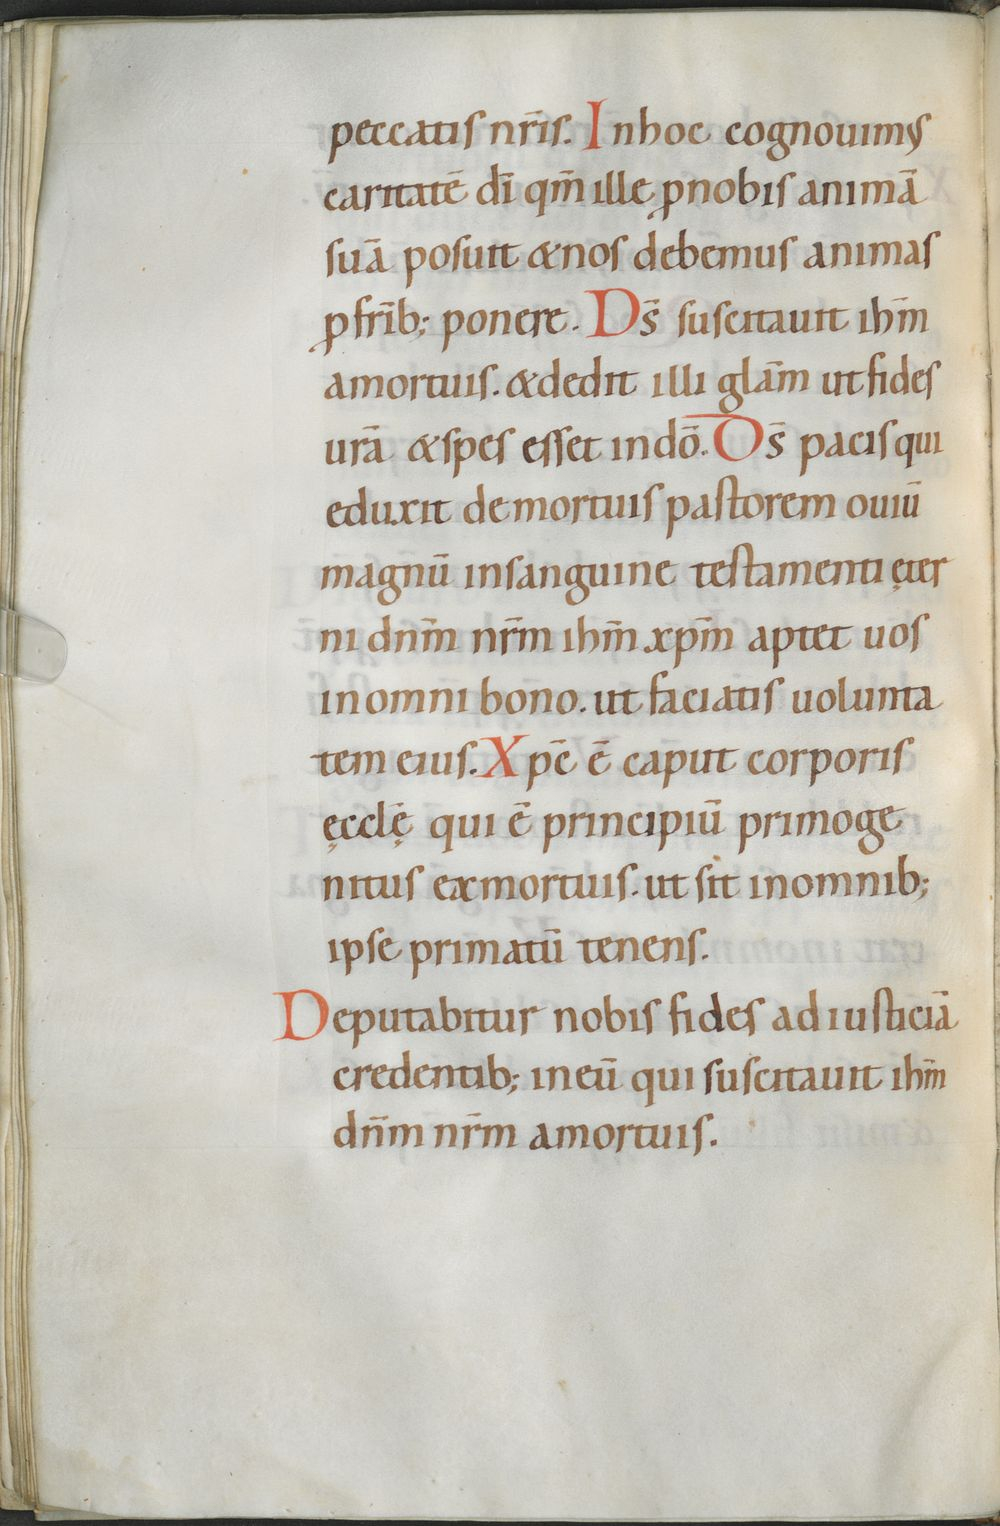 peccatis nr̄is. Inhoc cognouimꝰ
caritatē dī qm̄ ille ꝓnobis animā
suā posuit &nos debemus animas
ꝓfrīb; ponere. Ds̄ suscitauit ihm̄
amortuis. &dedit illi glām ut fides
urā &spes esset indō. Ds̄ pacis qui
eduxit de mortuis pastorem ouiū
magnū insanguine testamenti ęter
ni dnm̄ nr̄m ihm̄ xpm̄ aptet uos
inomni bono. ut faciatis uolunta
tem eius. Xpc̄ ē caput corporis
ęcclę̄ qui ē principiū primoge
nitus exmortuis. ut sit inomnib;
ipse primatū tenens.
Deputabitur nobis fides ad iusticiā
credentib; ineū qui suscitauit ihm̄
dnm̄ nr̄m amortuis.